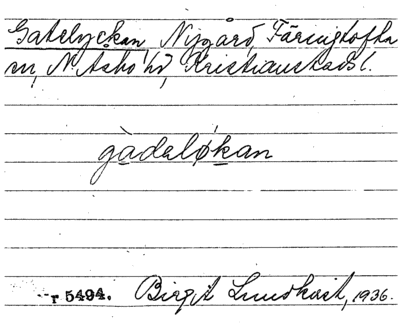 Gatelyckan, Nygård, Färingtofta
sn, N. Åsbo hd, Kristianstads l.
gàdeløkan
r 5494. Birgit Lundkvist, 1936.